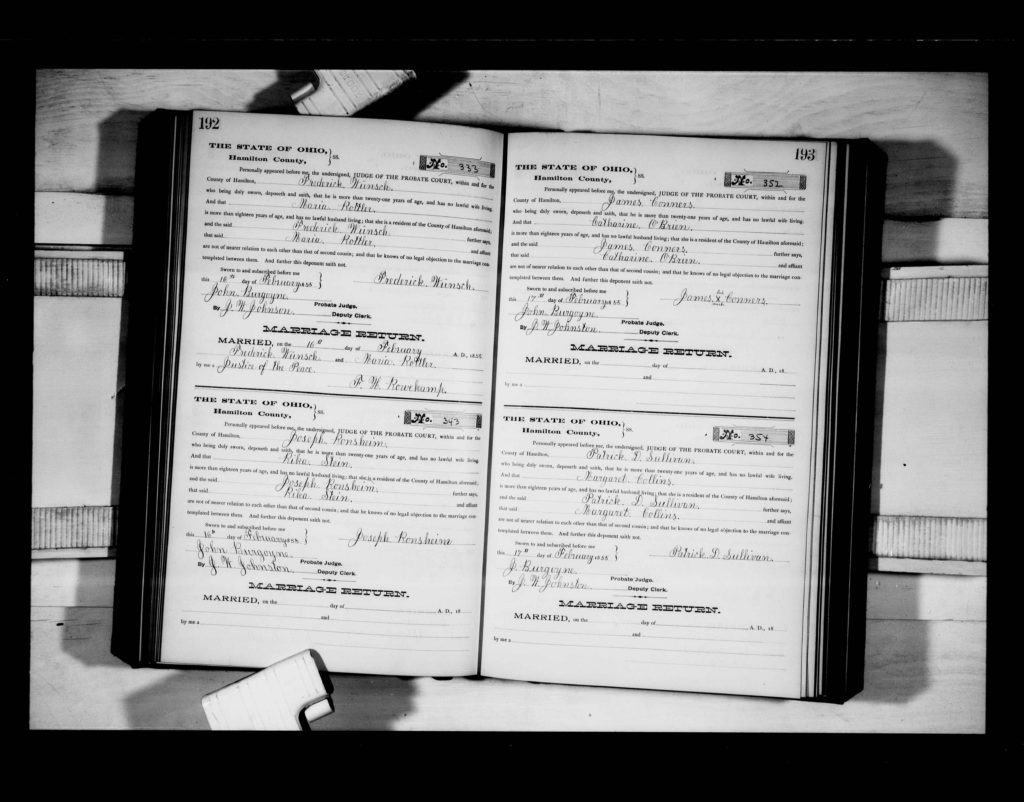 192
THE STATE OF OHIO,
Hamilton County, } SS.
No. 333
Personally appeared before me, the undersigned, JUDGE OF THE PROBATE COURT, within and for the
County of Hamilton, Frederick Wünsch.
who being duly sworn, deposeth and saith, that he is more than twenty-one years of age, and has no lawful wife living.
And that Maria Rottler.
is more than eighteen years of age, and has no lawful husband living; that she is a resident of the County of Hamilton aforesaid;
and the said Frederick Wünsch. further says,
that said Maria Rottler. and affiant
are not of nearer relation to each other than that of second cousin; and that he knows of no legal objection to the marriage con-
templated between them. And further this deponent saith not.
Sworn to and subscribed before me
this 16th day of February 1855 } Frederick Wünsch.
John Burgoyne.
Probate Judge.
By J. W. Johnson.
Deputy Clerk.
MARRIAGE RETURN.
MARRIED, on the 16th day of February A. D., 1855
Frederick Wünsch and Maria Rottler.
by me a Justice of the Peace.
F. W. Rowekamp.
THE STATE OF OHIO,
Hamilton County, } SS.
No. 343
Personally appeared before me, the undersigned, JUDGE OF THE PROBATE COURT, within and for the
County of Hamilton, Joseph Ronsheim.
who being duly sworn, deposeth and saith, that he is more than twenty-one years of age, and has no lawful wife living.
And that Rika Stein.
is more than eighteen years of age, and has no lawful husband living; that she is a resident of the County of Hamilton aforesaid;
and the said Joseph Ronsheim. further says,
that said Rika Stein. and affiant
are not of nearer relation to each other than that of second cousin; and that he knows of no legal objection to the marriage con-
templated between them. And further this deponent saith not.
Sworn to and subscribed before me
this 16th day of February 1855 } Joseph Ronsheim
John Burgoyne.
Probate Judge.
By J. W. Johnston.
Deputy Clerk.
MARRIAGE RETURN.
MARRIED, on the day of A. D., 18
and
by me a
193
THE STATE OF OHIO,
Hamilton County, } SS.
No. 352
Personally appeared before me, the undersigned, JUDGE OF THE PROBATE COURT, within and for the
County of Hamilton, James Conners.
who being duly sworn, deposeth and saith, that he is more than twenty-one years of age, and has no lawful wife living.
And that Catharine O'Brien.
is more than eighteen years of age, and has no lawful husband living; that she is a resident of the County of Hamilton aforesaid;
and the said James Conners. further says,
that said Catharine O'Brien. and affiant
are not of nearer relation to each other than that of second cousin; and that he knows of no legal objection to the marriage con-
templated between them. And further this deponent saith not.
Sworn to and subscribed before me
this 17th day of February 1855. } James X Conners.
John Burgoyne.
Probate Judge.
By J. W. Johnston.
Deputy Clerk.
MARRIAGE RETURN.
MARRIED, on the day of A. D., 18
and
by me a
THE STATE OF OHIO,
Hamilton County, } SS.
No. 354
Personally appeared before me, the undersigned, JUDGE OF THE PROBATE COURT, within and for the
County of Hamilton, Patrick D. Sullivan.
who being duly sworn, deposeth and saith, that he is more than twenty-one years of age, and has no lawful wife living.
And that Margaret Collins.
is more than eighteen years of age, and has no lawful husband living; that she is a resident of the County of Hamilton aforesaid;
and the said Patrick D. Sullivan. further says,
that said Margaret Collins. and affiant
are not of nearer relation to each other than that of second cousin; and that he knows of no legal objection to the marriage con-
templated between them. And further this deponent saith not.
Sworn to and subscribed before me
this 17th day of February 1855 } Patrick D. Sullivan.
J. Burgoyne.
Probate Judge.
By J. W. Johnston.
Deputy Clerk.
MARRIAGE RETURN.
MARRIED, on the day of A. D., 18
and
by me a